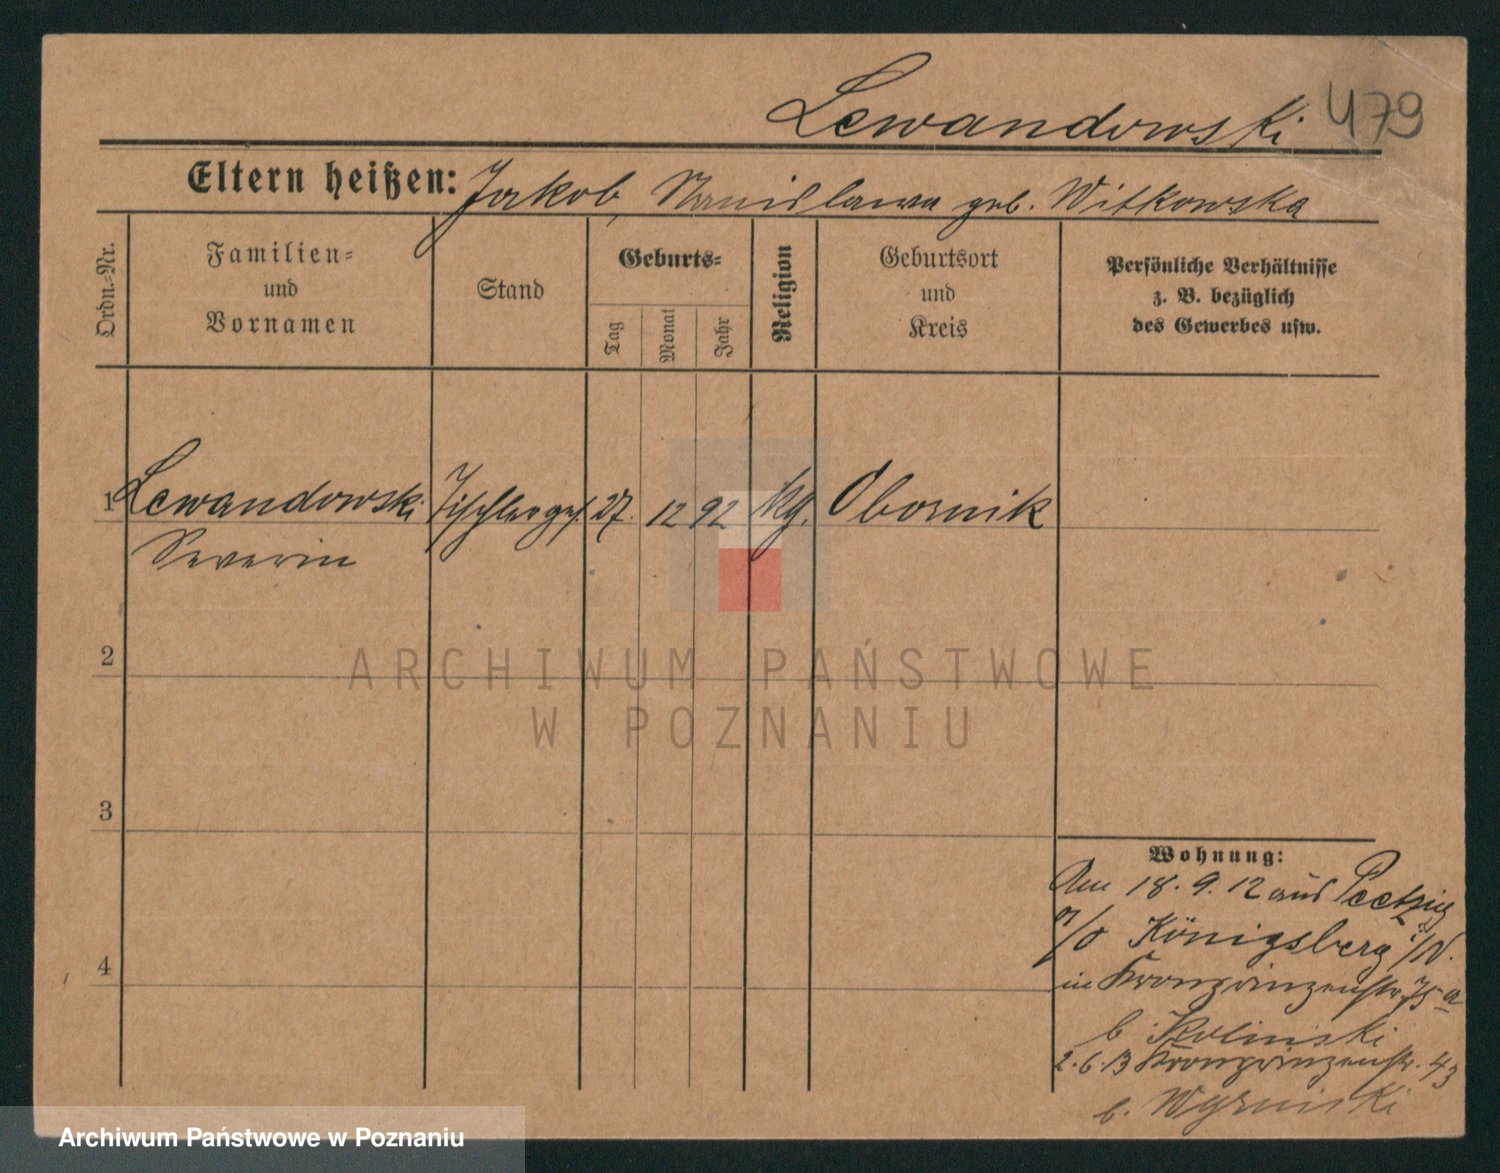 Lewandowski 479
Eltern heißen: Jakob, Stanislawa geb. Witkowska
Ordn.-Nr.
Familien-
und
Vornamen
Stand
Geburts-
Tag
Monat
Jahr
Religion
Geburtsort
und
Kreis
Persönliche Verhältnisse
z. B. bezüglich
des Gewerbes usw.
1 Lewandowski Tischlerges. 27. 12 92 kg. Obornik
Severin
2
ARCHIWUM PAŃSTWOWE
W POZNANIU
3
4
Wohnung:
Am 18.9.12 aus Peetzig
a/O Königsberg i/N.
in Kronprinzenstr. 75 a
b.
2.6.13 Kronprinzenstr. 43
b.
Archiwum Państwowe w Poznaniu